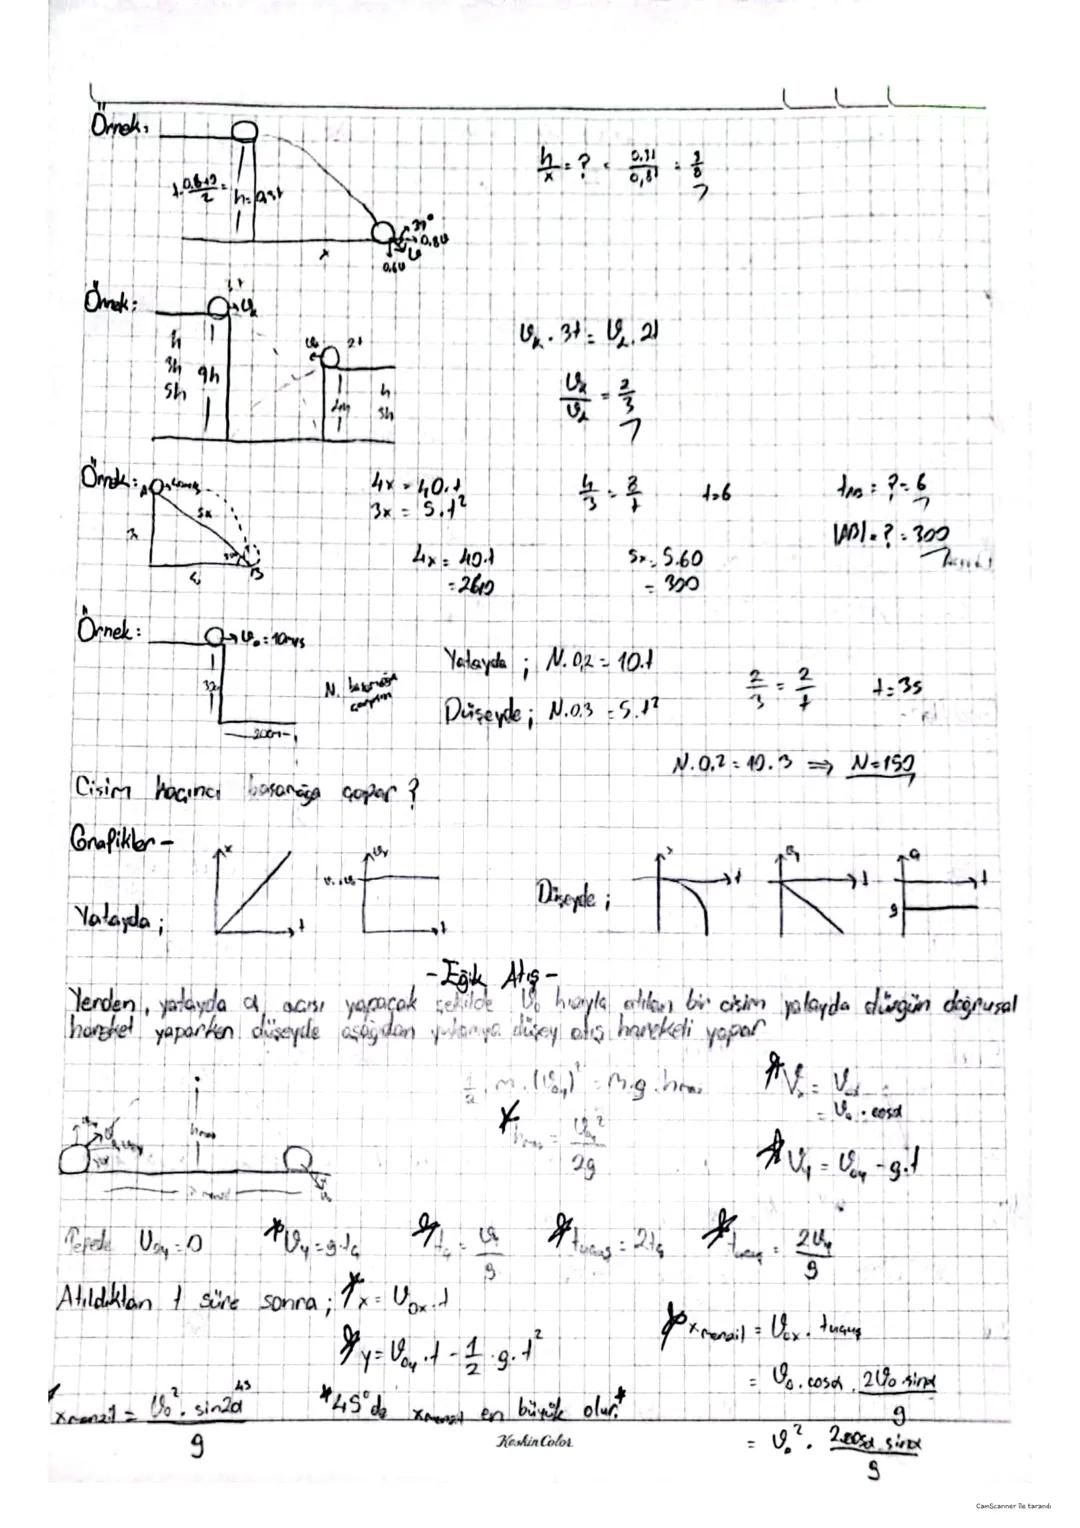 Örnek:
h/x = ? = 0,3t/0,8t = 3/8
t.0,6+0/2 = h = 0,3t
37°
0,8υ
x
υ
0,6υ
Örnek:
3t
υk
h
3h 9h
5h
2t
h
3h
υk . 3t = υL . 2t
υk/υL = 2/3
Örnek: A
5x
3x
B
4x = 40.t
3x = 5.t²
4/3 = 8/t
t=6
tAB = ? = 6
|AB| = ? = 300
4x = 40.t
= 240
5x = 5.60
= 300
Örnek:
υ₀ = 10m/s
N. basamağa çarpsın
Yatayda ; N.0,2 = 10.t
Düşeyde ; N.0,3 = 5.t²
2/3 = 2/t
t=3s
N.0,2 = 10.3 ⇒ N=150
Cisim kaçıncı basamağa çarpar ?
Grafikler -
Yatayda ;
x
t
υx
t
Düşeyde ;
t
υy
t
a
t
g
- Eğik Atış -
Yerden, yatayda α açısı yapacak şekilde υ₀ hızıyla atılan bir cisim yatayda düzgün doğrusal
hareket yaparken düşeyde aşağıdan yukarıya düşey atış hareketi yapar
1/2 . m . (υ₀y)² = m.g.hmax
* hmax = υ₀y²/2g
* υx = υ₀x
= υ₀ . cosα
* υy = υ₀y - g.t
hmax
x menzil
Tepede υ₀y = 0
* υy = g.tç
* tç = υy/g
* tuçuş = 2tç
* tuçuş = 2υy/g
Atıldıktan t süre sonra ; * x = υ₀x.t
* y = υ₀y.t - 1/2 .g.t²
* xmenzil = υ₀x . tuçuş
= υ₀.cosα . 2υ₀.sinα/g
= υ₀² . 2.cosα.sinα/g
* xmenzil = υ₀² . sin2α/g
45
* 45° de xmenzil en büyük olur. *
KeskinColor
CamScanner ile tarandı